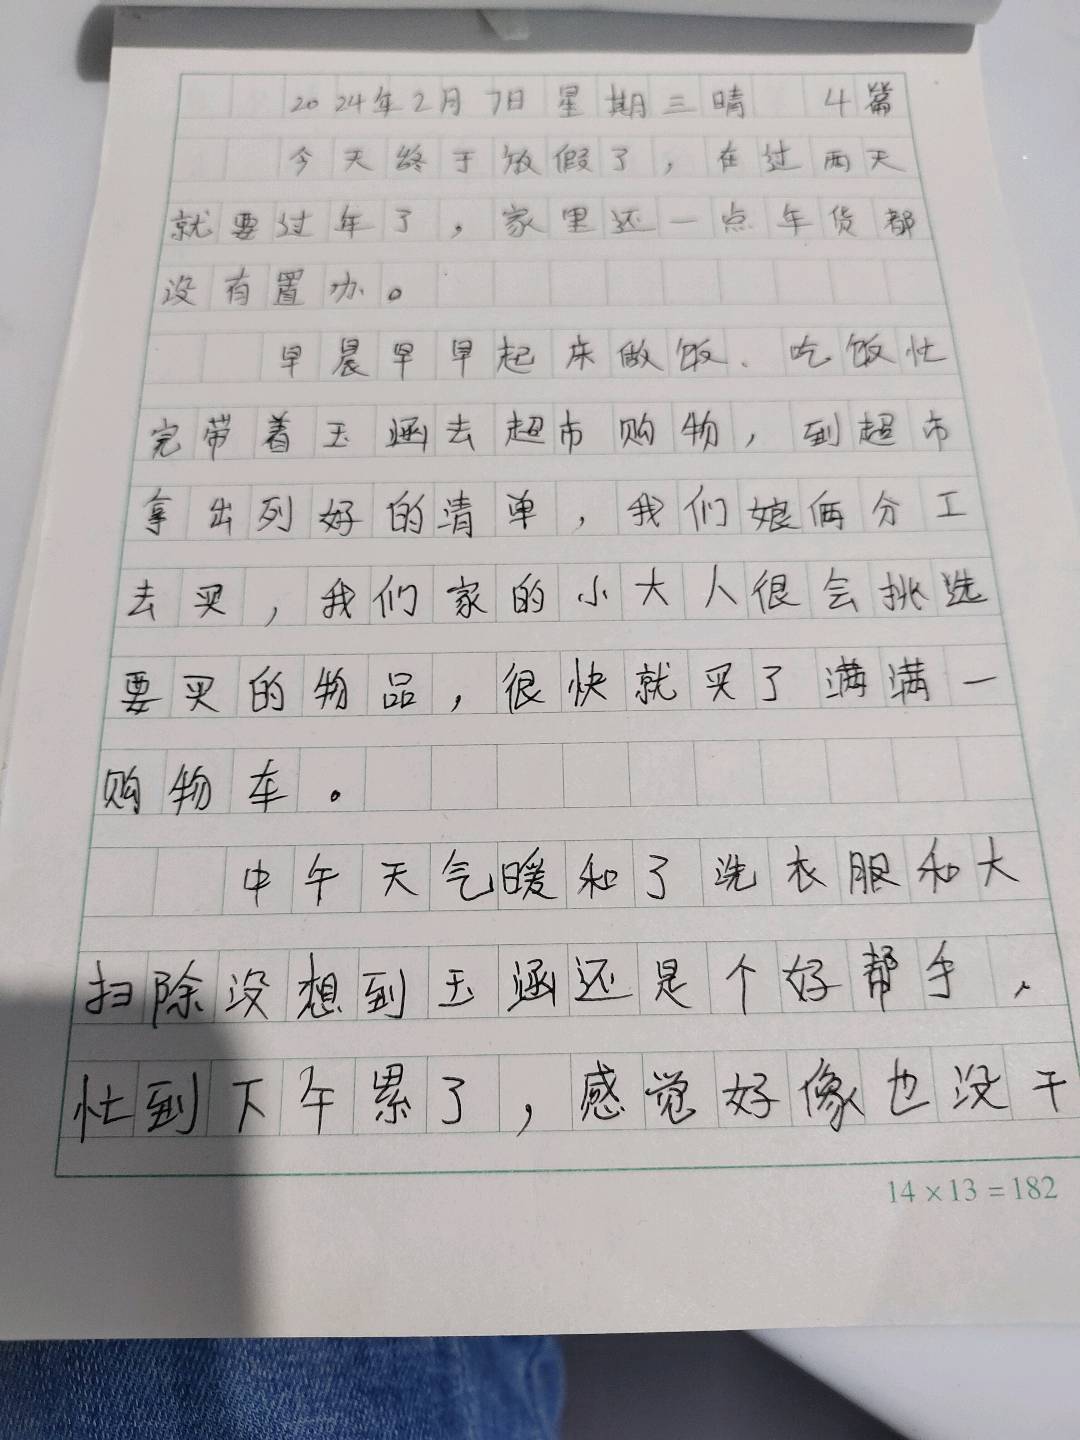 2024年2月7日星期三晴 4篇
今天终于放假了，在过两天
就要过年了，家里还一点年货都
没有置办。
早晨早早起床做饭、吃饭忙
完带着玉涵去超市购物，到超市
拿出列好的清单，我们娘俩分工
去买，我们家的小大人很会挑选
要买的物品，很快就买了满满一
购物车。
中午天气暖和了洗衣服和大
扫除没想到玉涵还是个好帮手，
忙到下午累了，感觉好像也没干
14×13=182